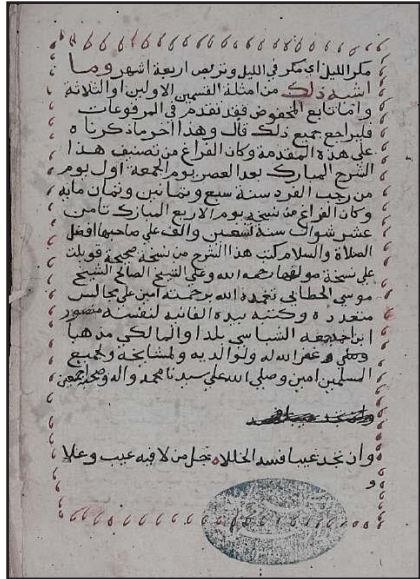 مكر الليل اي مكر في الليل وتربص اربعة اشهر وما
اشبه ذلك من امثلة القسمين الاولين او الثلاثة
واما تابع المخفوض فقد تقدم في المرفوعات
فليراجع جميع ذلك قال وهذا اخر ما ذكرناه
علي هذه المقدمة وكان الفراغ من تصنيف هذا
الشرح المبارك بعد العصر يوم الجمعة اول يوم
من رجب الفرد سنة سبع وثمانين وثمان مايه
وكان الفراغ من نسخه يوم الاربع المبارك ثامن
عشر شوال سنة تسعين والف علي صاحبها افضل
الصلاة والسلام كتبت هذا الشرح من نسخة صحيحة قوبلت
علي نسخة مولفها رحمه الله وعلي الشيخ الصالح الشيخ
موسي الخطابي تغمده الله برحمته امين علي مجالس
متعدده وكتبه بيده الفانية لنفسه منصور
ابن احمد جمعه الشباسي بلدا والمالكي مذهبا
غفر الله له ولوالديه ولمشايخه ولجميع
المسلمين امين وصلي الله علي سيدنا محمد واله وصحبه اجمعين
وان تجد عيبا فسد الخللا فجل من لا فيه عيب وعلا
و